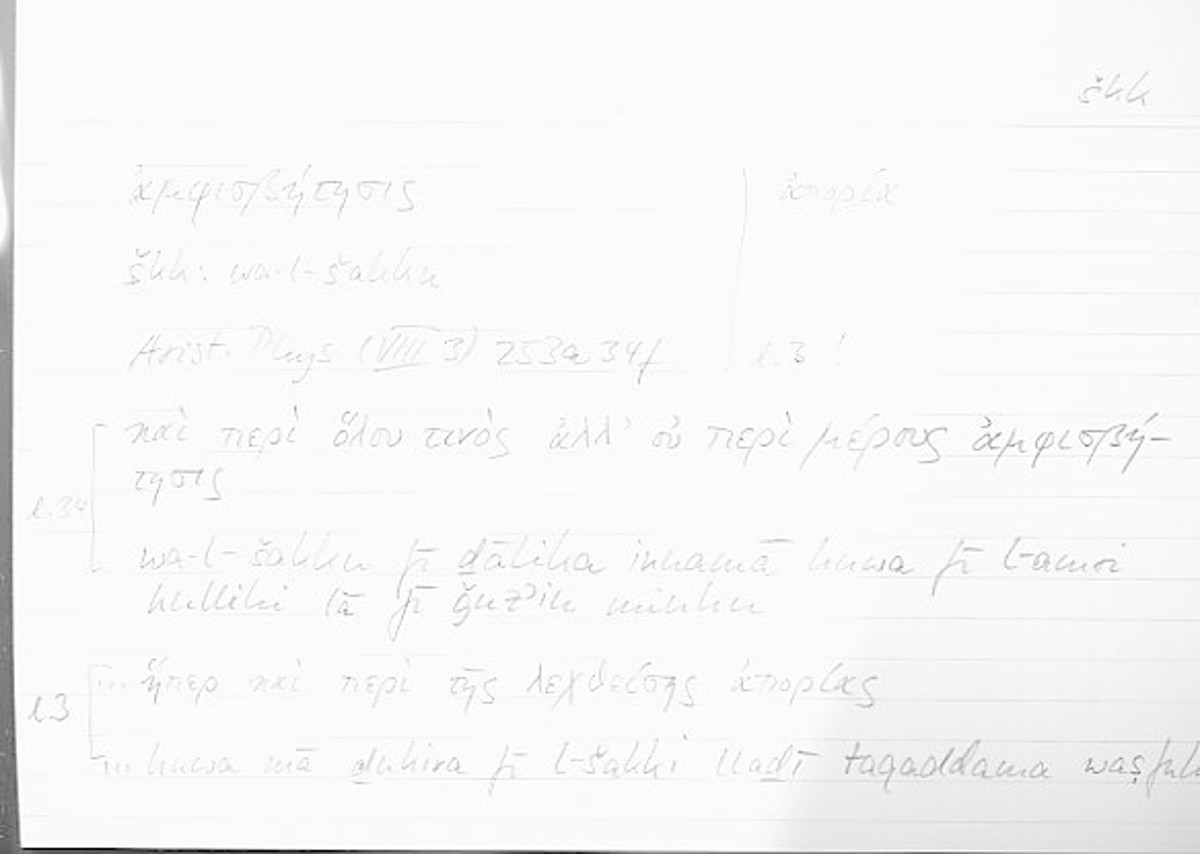 škk
ἀμφισβήτησις | ἀπορία
škk: wa-l-šakku
Arist. Phys (VIII 3) 253a34f | l.3 !
καὶ περὶ ὅλου τινὸς ἀλλ' οὐ περὶ μέρους ἀμφισβή-
τησις
l.34
wa-l-šakku fī ḏālika innamā huwa fī l-amri
kullihi lā fī ǧuzʾin minhu
... ἥπερ καὶ περὶ τῆς λεχθείσης ἀπορίας
l.3
... huwa mā ḏukira fī l-šakki llaḏī taqaddama waṣfuh